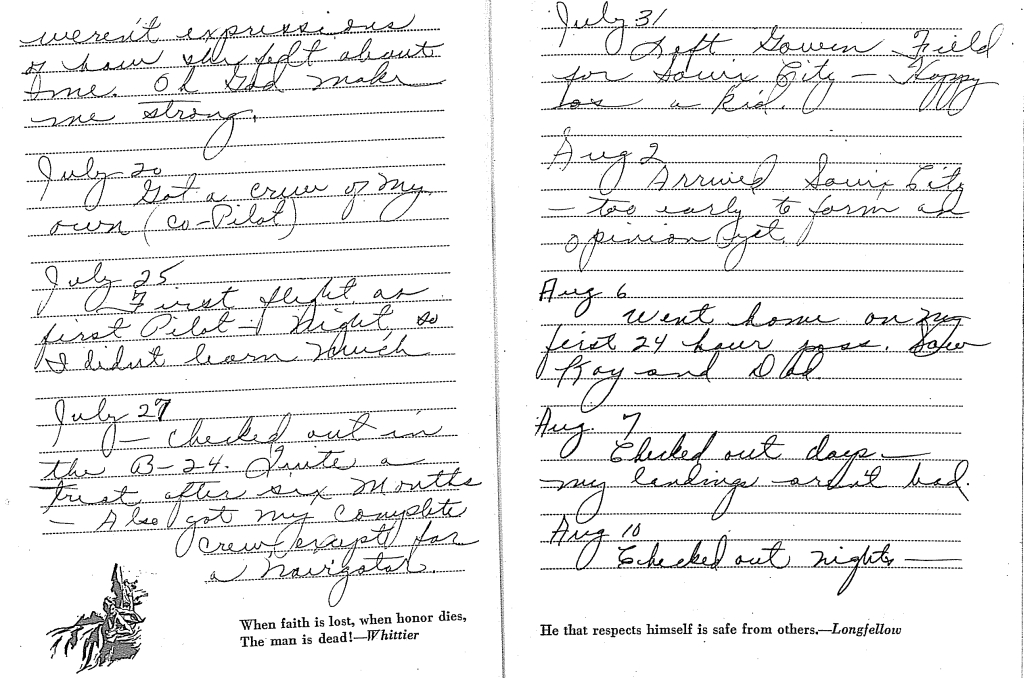 weren't expressions
of how she felt about
me. Oh God make
me strong.
July 20
Got a crew of my
own (co-Pilot)
July 25
First flight as
first Pilot - Night, so
I didn't learn much
July 27
- Checked out in
the B-24. Quite a
treat after six months
- Also got my complete
crew, except for
a navigator.
When faith is lost, when honor dies,
The man is dead!—Whittier
July 31
Left Gowen Field
for Souix City - Happy
as a kid.
Aug 2
Arrived Souix City
- too early to form an
opinion yet.
Aug 6
Went home on my
first 24 hour pass. Saw
Kay and Dad
Aug. 7
Checked out days -
my landings aren't bad.
Aug 10
Checked out nights -
He that respects himself is safe from others.—Longfellow